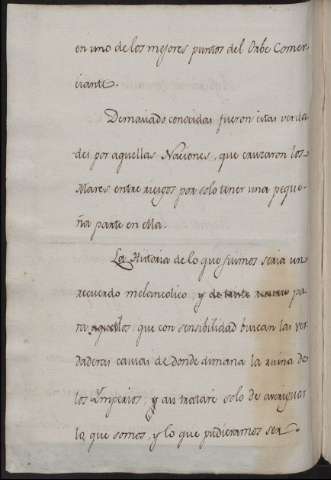 en uno de los mejores puntos del Orbe Comer
ciante.
Demasiado conocidas fueron estas verda
des por aquellas Naciones, que cruzaron los
Mares entre riesgos por solo tener una peque
ña parte en ella.
La Historia de lo que fuimos seria un
recuerdo melancolico, y de tanto pa
ra aquellos, que con sensibilidad buscan las ver
daderas causas de donde dimana la ruina de
los Imperios; y asi tratare solo de averiguar
lo, que somos, y lo que pudieramos ser.